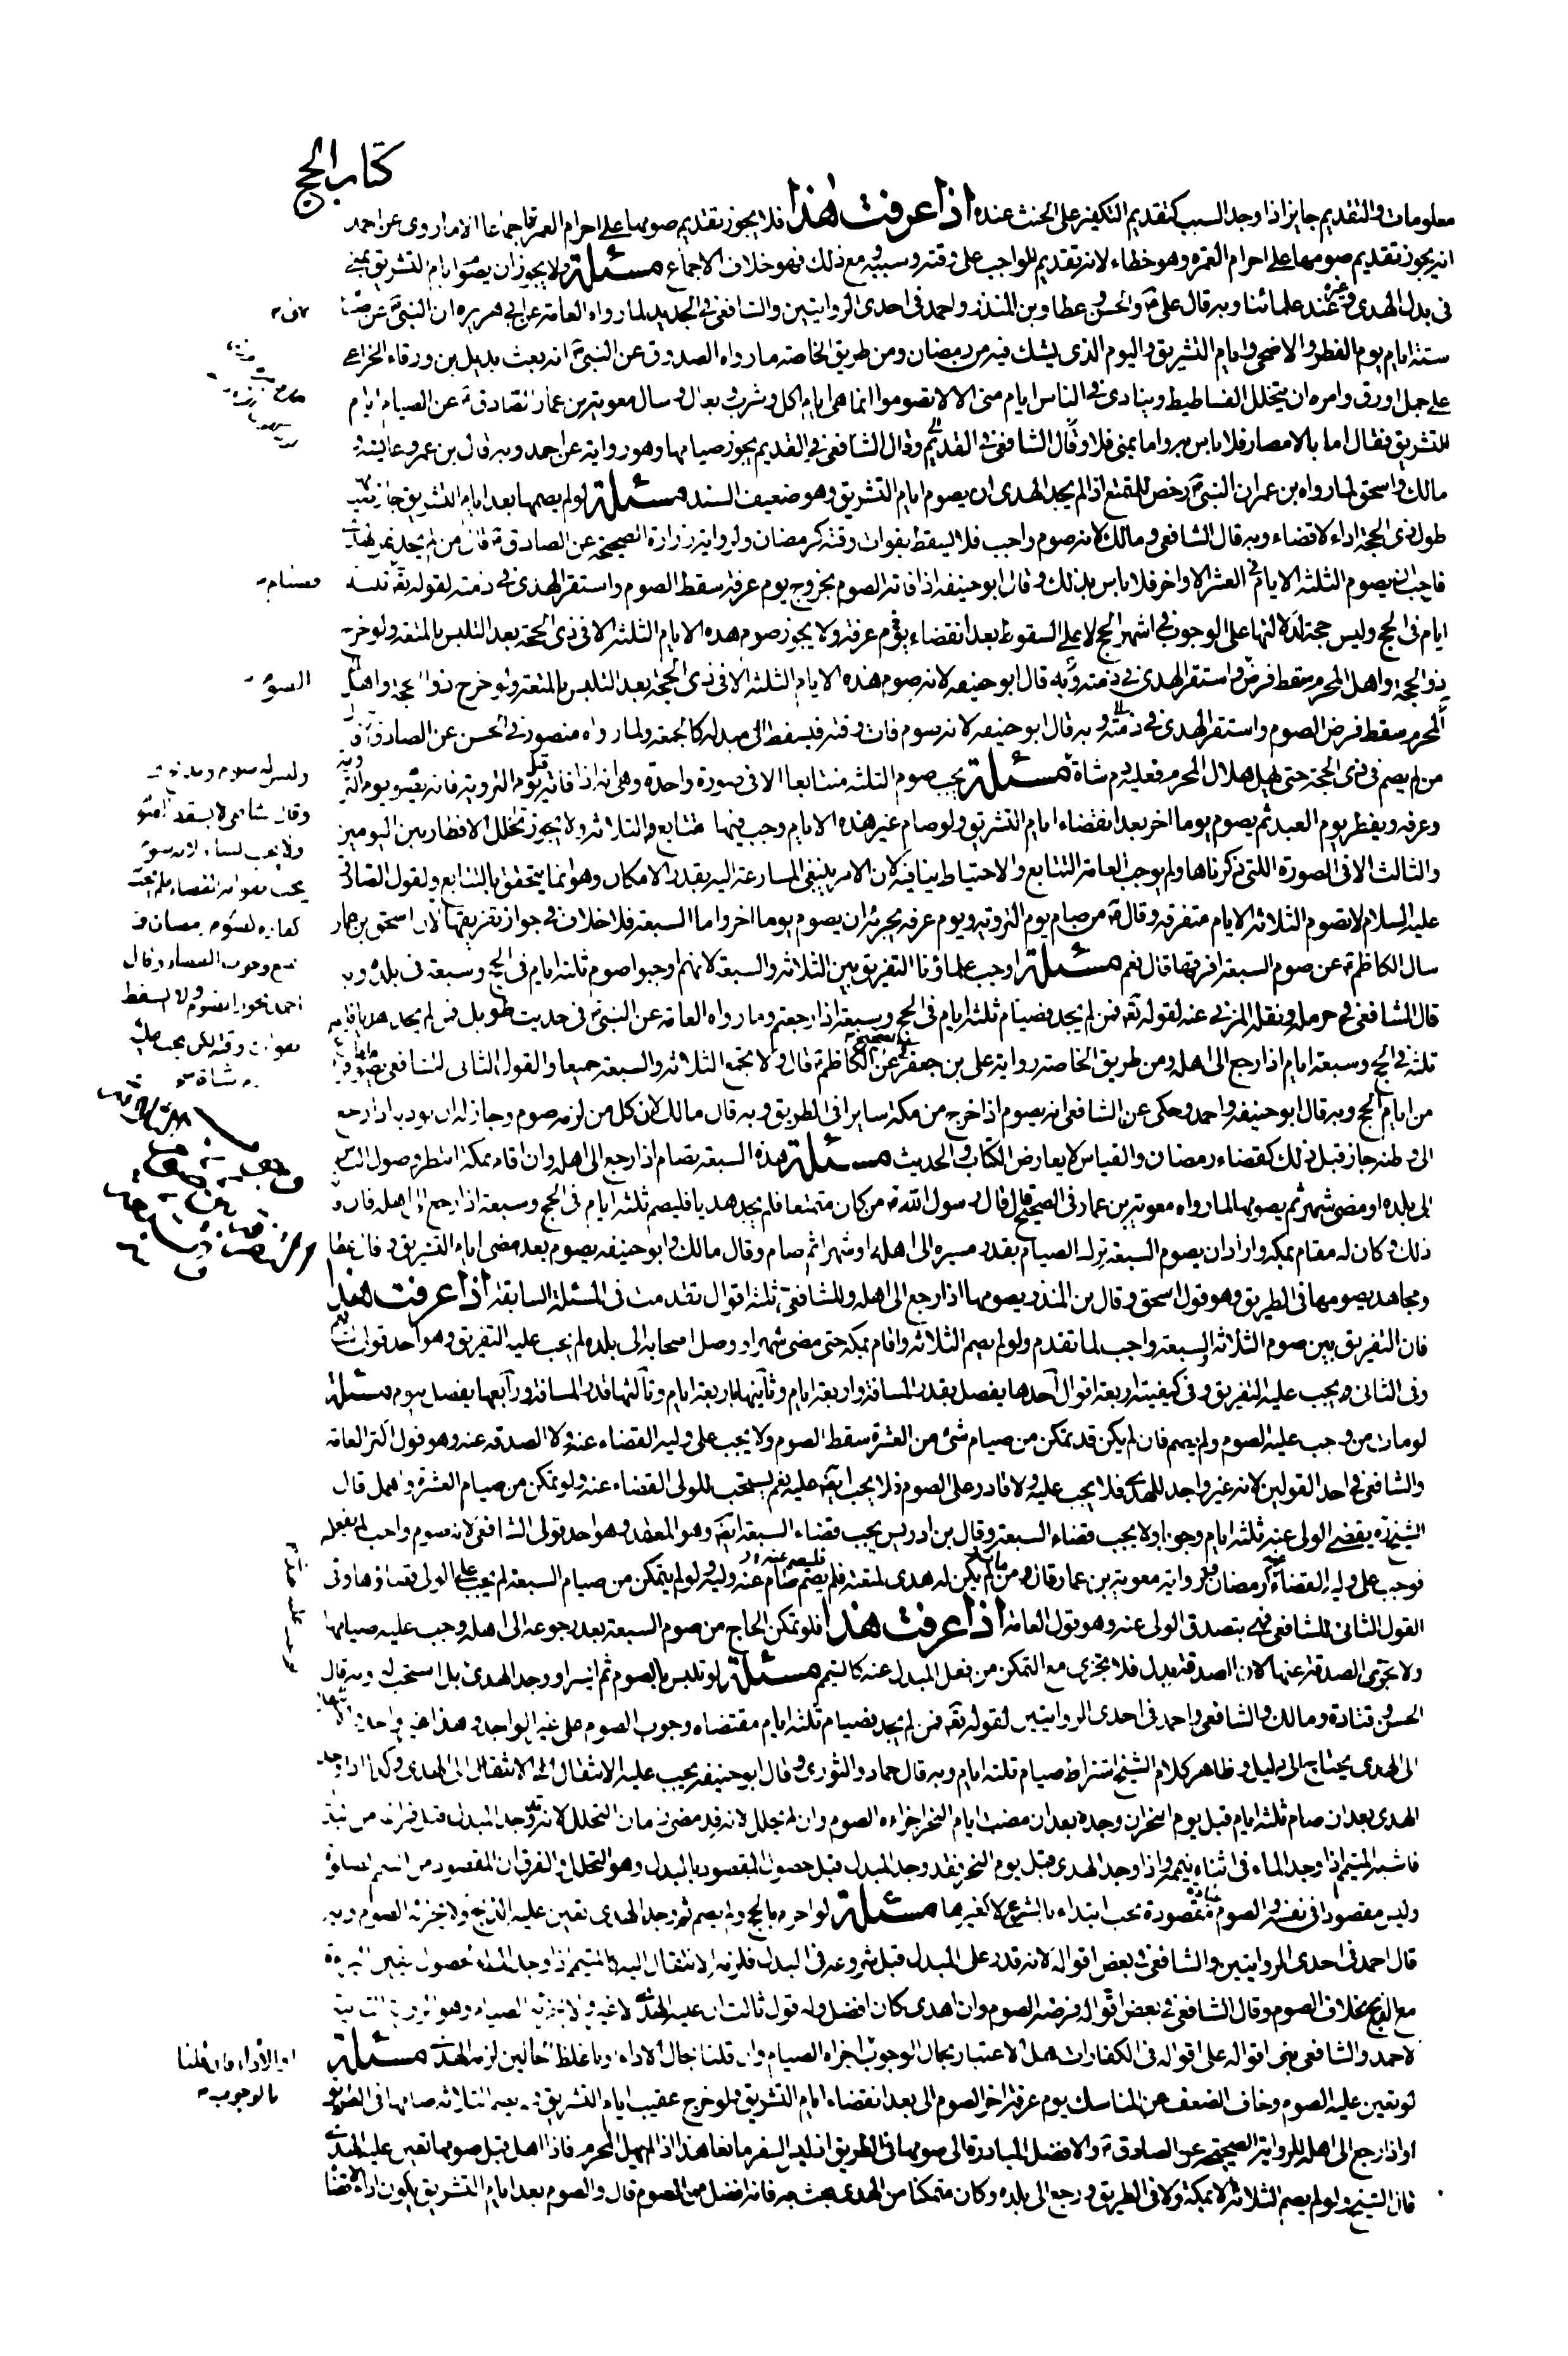 كتاب الحج
معلومات والتقديم جايز اذا وجد السبب كتقديم التكفير على الحنث عنده اذا عرفت هذا فلا يجوز تقديم صومها على احرام العمرة اجماعا الا ما روى عن احمد
انه يجوز تقديم صومها على احرام العمرة وهو خطاء لانه تقديم للواجب على وقته وسببه ومع ذلك فهو خلاف الاجماع مسئلة ولا يجوز ان يصوم ايام التشريق بمنى
فى بدل الهدى وغيره عند علمائنا وبه قال على ع والحسن وعطا وبن المنذر واحمد فى احدى الروايتين والشافعى فى الجديد لما رواه العامة عن ابى هريره ان النبى ص نهى عن صيام
ستة ايام يوم الفطر والاضحى وايام التشريق واليوم الذى يشك فيه من رمضان ومن طريق الخاصه ما رواه الصدوق عن النبى ص انه بعث بديل بن ورقاء الخزاعى
على جمل اورق وامره ان يتخلل الفساطيط وينادى فى الناس ايام منى الا لا تصوموا انما هى ايام اكل وشرب وبعال وسال معوية بن عمار الصادق ع عن الصيام ايام
التشريق فقال اما بالامصار فلا باس به واما بمنى فلا وقال الشافعى فى القديم يجوز صيامها وهو رواية عن احمد وبه قال بن عمر وعايشه و
مالك واسحق لما رواه بن عمر ان النبى ص رخص للمتمتع اذا لم يجد الهدى ان يصوم ايام التشريق وهو ضعيف السند مسئلة لو لم يصمها بعد ايام التشريق جاز
طول ذى الحجة اداء لا قضاء وبه قال الشافعى ومالك لانه صوم واجب فلا يسقط بفوات وقته كرمضان ولرواية زرارة الصحيحة عن الصادق ع قال من لم يجد ثمن الهدى
فاحب ان يصوم الثلثة الايام فى العشر الاواخر فلا باس بذلك وقال ابو حنيفه اذا فاته الصوم بخروج يوم عرفة سقط الصوم واستقر الهدى فى ذمته لقوله تع ثلثة
ايام فى الحج وليس حجة لدلالتها على الوجوب فى اشهر الحج لا على السقوط بعد انقضاء يوم عرفة ولا يجوز صوم هذه الايام الثلثة الا فى ذى الحجة بعد التلبس بالمتعه ولو خرج
ذو الحجة واهل المحرم سقط فرض واستقر الهدى فى ذمته وبه قال ابو حنيفه لانه صوم هذه الايام الثلثة الا فى ذى الحجة بعد التلبس بالمتعة ولو خرج ذو الحجة واهل
المحرم سقط فرض الصوم واستقر الهدى فى ذمته وبه قال ابو حنيفه لانه صوم فات وقته فيسقط الى مبدله كالجمعه ولما رواه منصور فى الحسن عن الصادق ع قال
من لم يصم فى ذى الحجة حتى يهل هلال المحرم فعليه دم شاة مسئلة يجب صوم الثلثة متتابعا الا فى صورة واحدة وهى انه اذا فاته قبل يوم التروية فانه يصوم يوم التروية
وعرفه ويفطر يوم العيد ثم يصوم يوما اخر بعد انقضاء ايام التشريق ولو صام غير هذه الايام وجب فيها متتابع الثلاثة ولا يجوز تخلل الافطار بين اليومين
والثالث الا فى الصورة اللتى ذكرناها ولم يوجب العامة التتابع والاحتياط ينافيه لان الامر يقتضى المسارعة اليه بقدر الامكان وهو انما يتحقق بالتتابع ولقول الصادق
عليه السلام لا تصوم الثلاثة الايام متفرقه وقال ع من صام يوم التروية ويوم عرفه يجزئه ان يصوم يوما اخر واما السبعة فلا خلاف فى جواز تفريقها لان اسحق بن عمار
سال الكاظم ع عن صوم السبعة افرقها قال نعم مسئلة اوجب علماؤنا التفريق بين الثلاثة والسبعة لانهم اوجبوا صوم ثلثة ايام فى الحج وسبعة فى بلده وبه
قال الشافعى فى حرمله ونقله المزنى عنه لقوله تع فمن لم يجد فصيام ثلثة ايام فى الحج وسبعة اذا رجعتم وما رواه العامة عن النبى ص فى حديث طويل فمن لم يجد هديا فليصم
ثلثة فى الحج وسبعة ايام اذا رجع الى اهله ومن طريق الخاصة رواية على بن جعفر فى الصحيح عن الكاظم ع قال ولا تجمع الثلاثة والسبعة جميعا والقول الثانى للشافعى
من ايام الحج وبه قال ابو حنيفه واحمد وحكى عن الشافعى انه يصوم اذا خرج من مكة سايرا فى الطريق وبه قال مالك لان كل من لزمه صوم وجاز له ان يوديه اذا رجع
الى وطنه جاز قبل ذلك كقضاء رمضان والقياس لا يعارض الكتاب والحديث مسئلة هذه السبعة تصام اذا رجع الى اهله وان اقام بمكة انتظر وصول الناس
الى بلده او مضى شهر ثم يصومها لما رواه معوية بن عمار فى الصحيح قال قال رسول الله ص من كان متمتعا فلم يجد هديا فليصم ثلثة ايام فى الحج وسبعة اذا رجع الى اهله فان فاته
ذلك وكان له مقام بمكه واراد ان يصوم السبعة ترك الصيام بقدر مسيره الى اهله او شهرا ثم صام وقال مالك وابو حنيفه يصوم بعد مضى ايام التشريق وقال عطا
ومجاهد يصومها فى الطريق وهو قول اسحق وقال بن المنذر يصومها اذا رجع الى اهله وللشافعى ثلثة اقوال تقدمت فى المسئلة السابقة اذا عرفت هذا
فان التفريق بين صوم الثلاثة والسبعة واجب لما تقدم ولو لم يصم الثلاثة واقام بمكة حتى مضى شهر او وصل اصحابه الى بلده لم يجب عليه التفريق وهو احد قولى الشافعى
وفى الثانى يجب عليه التفريق وفى كيفيته اربعة اقوال احدها يفصل بقدر المسافة واربعة ايام وثانيها باربعة ايام وثالثها قدر المسافة ورابعها يفصل بيوم مسئلة
لو مات من وجب عليه الصوم ولم يصم فان لم يكن قد تمكن من صيام شئ من العشرة سقط الصوم ولا يجب على وليه القضاء عنه ولا الصدقه عنه وهو قول اكثر العامة
والشافعى فى احد القولين لانه غير واجد للهدى فلا يجب عليه ولا قادر على الصوم فلا يجب ايضا عليه نعم يستحب للولى القضاء عنه ولو تمكن من صيام العشرة واهمل قال
الشيخ ره يقضى الولى عنه ثلثة ايام وجوبا ولا يجب قضاء السبعة وقال بن ادريس يجب قضاء السبعة ايضا وهو المعتمد وهو احد قولى الشافعى لانه صوم واجب لم يفعله
فوجب على وليه القضاء عنه كرمضان ولرواية معوية بن عمار قال من مات ولم يكن له هدى لمتعته فليصم عنه وليه ولو لم يتمكن من صيام السبعة لم يجب على الولى قضاؤها وفى
القول الثانى للشافعى يتصدق الولى عنه وهو قول العامة اذا عرفت هذا فلو تمكن الحاج من صوم السبعة بعد رجوعه الى اهله وجب عليه صيامها
ولا تجزى الصدقة عنها لان الصدقة بدل فلا تجزى مع التمكن من فعل المبدل عنه كالتيمم مسئلة لو تلبس بالصوم ثم ايسر او وجد الهدى بل استحب له وبه قال
الحسن وقتادة ومالك والشافعى واحمد فى احدى الروايتين لقوله تع فمن لم يجد فصيام ثلثة ايام مقتضاه وجوب الصوم على غير الواجد وهذا غير واجد
الى الهدى يحتاج الى دليل وظاهر كلام الشيخ اشتراط صيام ثلثة ايام وبه قال حماد والثورى وقال ابو حنيفه يجب عليه الانتقال الى الهدى وكذا اذا وجد
الهدى بعد ان صام ثلثة ايام قبل يوم النحر ان وجده بعد ان مضت ايام النحر اجزاءه الصوم وان لم يتحلل لانه قد مضى زمان التحلل لانه وجد المبدل قبل فراغه من البدل
فاشبه المتيمم اذا وجد الماء فى اثناء تيممه واذا وجد الهدى قبل يوم النحر فقد وجد المبدل قبل حصول المقصود بالبدل وهو التحلل والفرق ان المقصود من التيمم الصلوة
وليس مقصودا فى نفسه والصوم عبادة مقصودة تجب ابتداء بالشرع لا لغيرها مسئلة لو احرم بالحج ولم يصم ثم وجد الهدى تعين عليه الذبح ولا يجزئه الصوم وبه
قال احمد فى احدى الروايتين والشافعى فى بعض اقواله لانه قدر على المبدل قبل شروعه فى البدل فلزمه الانتقال اليه كالمتيمم اذا وجد الماء لحصول يقين البراءة
مع الذبح بخلاف الصوم وقال الشافعى فى بعض اقواله فرضه الصوم وان اهدى كان افضل وله قول ثالث ان عليه الهدى لا غير ولا يجزئه الصيام وهو الرواية الثانية
لاحمد والشافعى بنى اقواله على اقواله فى الكفارات هل الاعتبار بحال الوجوب اجزاه الصيام وان قلنا بحال الاداء او باغلظ الحالين لزمه الهدى مسئلة
لو تعين عليه الصوم وخاف الضعف عن المناسك يوم عرفة اخر الصوم الى بعد انقضاء ايام التشريق ولو خرج عقيب ايام التشريق ولم يصم الثلاثة صامها فى الطريق
او اذا رجع الى اهله للرواية الصحيحة عن الصادق ع والافضل المبادرة الى صومها فى الطريق اذ ليس السفر مانعا هذا اذا لم يهل المحرم فاذا اهل قبل صومها تعين عليه الهدى
قال الشيخ ولو لم يصم الثلاثة لا بمكة ولا فى الطريق ورجع الى بلده وكان متمكنا من الهدى بعث به فانه افضل من الصوم قال والصوم بعد ايام التشريق يكون اداء لا قضا
او الاداء فان قلنا
بالوجوب